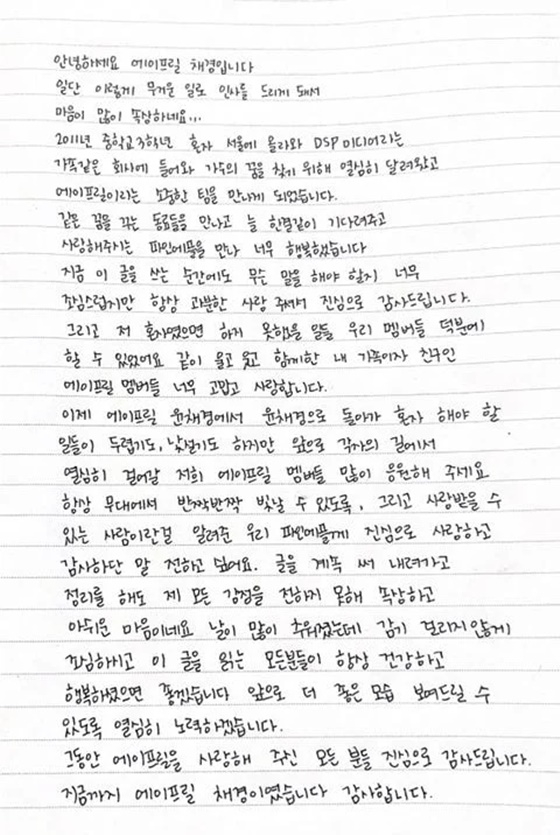 안녕하세요 에이프릴 채경입니다
일단 이렇게 무거운 일로 인사를 드리게 돼서
마음이 많이 속상하네요...
2011년 중학교 3학년 혼자 서울에 올라와 DSP 미디어라는
가족같은 회사에 들어와 가수의 꿈을 찾기 위해 열심히 달려왔고
에이프릴이라는 소중한 팀을 만나게 되었습니다.
같은 꿈을 꾸는 동료들을 만나고 늘 한결같이 기다려주고
사랑해주시는 파인에플을 만나 너무 행복했습니다
지금 이 글을 쓰는 순간에도 무슨 말을 해야 할지 너무
조심스럽지만 항상 과분한 사랑 주셔서 진심으로 감사드립니다.
그리고 저 혼자였으면 하지 못했을 일들 우리 멤버들 덕분에
할 수 있었어요 같이 울고 웃고 함께한 내 가족이자 친구인
에이프릴 멤버들 너무 고맙고 사랑합니다.
이제 에이프릴 윤채경에서 윤채경으로 돌아가 혼자 해야 할
일들이 두렵기도, 낯설기도 하지만 앞으로 각자의 길에서
열심히 걸어갈 저희 에이프릴 멤버들 많이 응원해 주세요
항상 무대에서 반짝반짝 빛날 수 있도록, 그리고 사랑받을 수
있는 사람이란걸 알려준 우리 파인에플에게 진심으로 사랑하고
감사하단 말 전하고 싶어요. 글을 계속 써 내려가고
정리를 해도 제 모든 감정을 전하지 못해 속상하고
아쉬운 마음이네요 날이 많이 추워졌는데 감기 걸리지 않게
조심하시고 이 글을 읽는 모든분들이 항상 건강하고
행복하셨으면 좋겠습니다 앞으로 더 좋은 모습 보여드릴 수
있도록 열심히 노력하겠습니다.
그동안 에이프릴을 사랑해 주신 모든 분들 진심으로 감사드립니다.
지금까지 에이프릴 채경이였습니다 감사합니다.